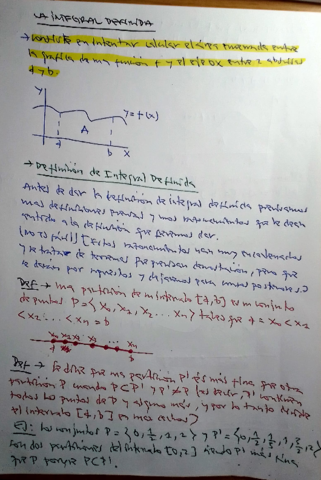 LA INTEGRAL DEFINIDA
→ consiste en intentar calcular el área encerrada entre
la gráfica de una función f y el eje OX entre 2 abscisas
a y b.
y
y=f(x)
A
a b x
→ Definición de Integral Definida
Antes de dar la definición de integral definida precisamos
unas definiciones previas y unos razonamientos que le den
sentido a la definición que queremos dar.
(No es fácil) [Estos razonamientos van muy encadenados
y se tratan de teoremas que precisan demostración, pero que
se darán por supuestos y dejaremos para cursos posteriores.]
Def → una partición de un intervalo [a,b] es un conjunto
de puntos P = {x₀, x₁, x₂, ... xₙ} tales que a = x₀ < x₁
< x₂ ... < xₙ = b
x₀ x₁ x₂ x₃ ... xₙ
a b
Def → Se dice que una partición P' es más fina que otra
partición P cuando P⊂P' y P'≠P (es decir, P' contiene
todos los puntos de P y alguno más, y por lo tanto divide
el intervalo [a,b] en más trozos)
Ej: Los conjuntos P = {0, 1/2, 1, 2} y P' = {0, 1/3, 1/2, 1, 3/2, 2}
son dos particiones del intervalo [0,2] siendo P' más fina
que P porque P⊂P'.